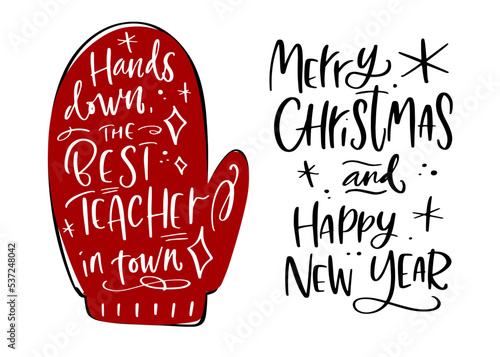 Hands
down,
THE
BEST
TEACHER
in town
Merry
CHRISTMAS
and
HAPPY
NEW YEAR
Adobe Stock | #537248042